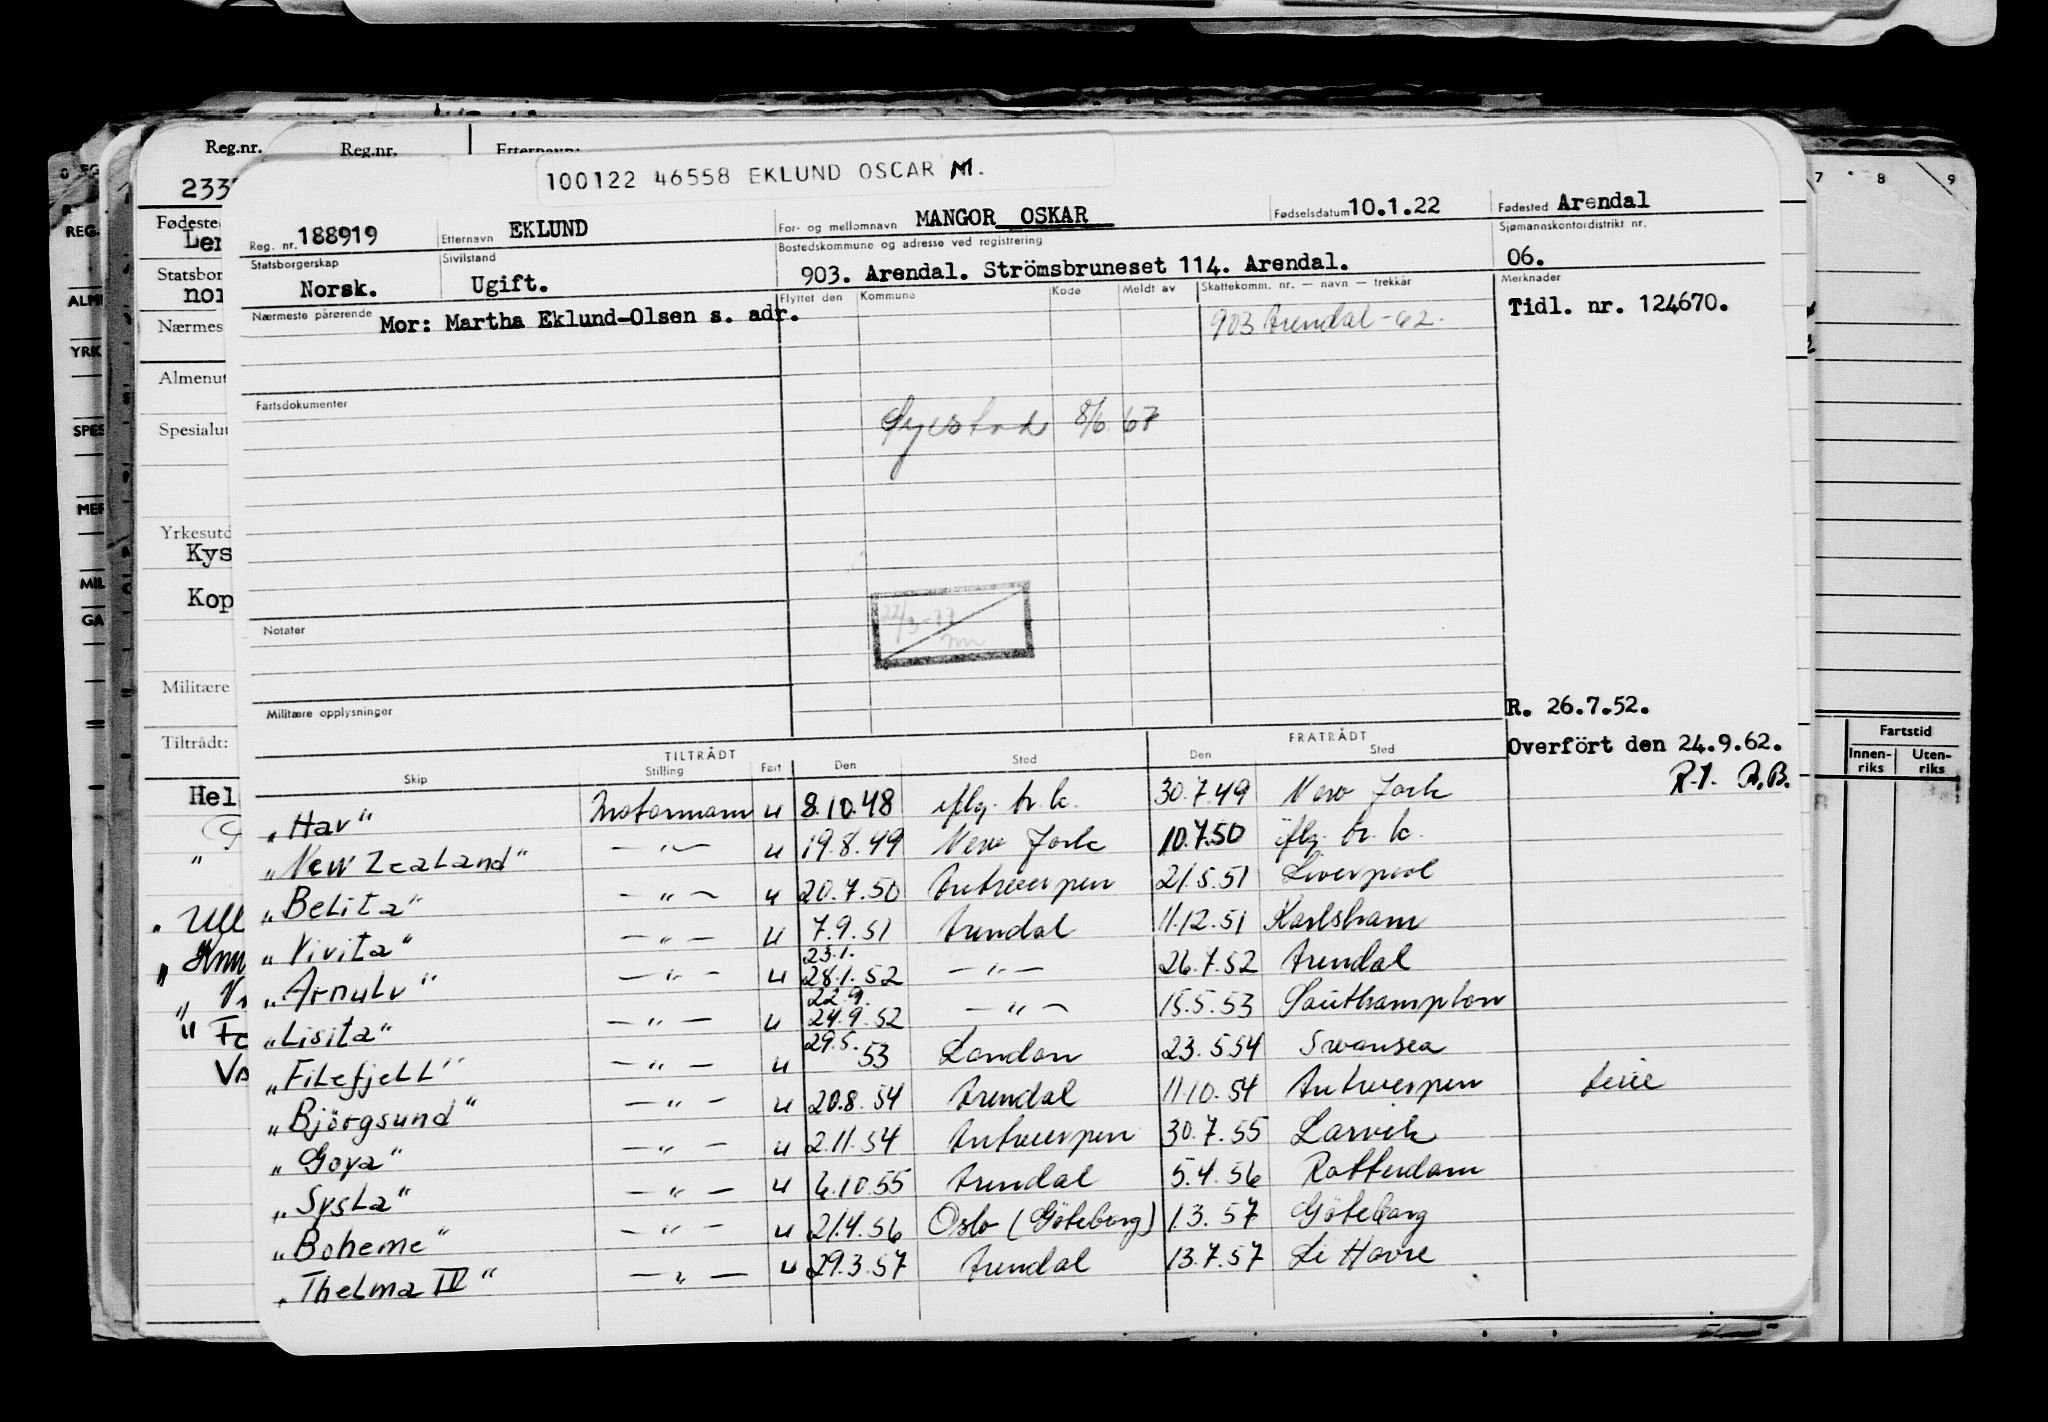 Reg.nr. Reg.nr. Etternavn:
100122 46558 EKLUND OSCAR M.
Reg. nr. 188919 Etternavn EKLUND For- og mellomnavn MANGOR OSKAR Fødselsdatum 10.1.22 Fødested Arendal
Statsborgerskap Norsk. Sivilstand Ugift. Bostedskommune og adresse ved registrering 903. Arendal. Strömsbruneset 114. Arendal. Sjømannskontordistrikt nr. 06.
Nærmeste pårørende Mor: Martha Eklund-Olsen s. adr. Flyttet den Kommune Kode Meldt av Skattekomm. nr. — navn — trekkår Merknader
903 Arendal - 62. Tidl. nr. 124670.
Fartsdokumenter
8/6. 67
Notater
Militære opplysninger
R. 26.7.52.
Overfört den 24.9.62.
R.J. B.B.
TILTRÅDT FRATRÅDT
Skip Stilling Fart Den Sted Den Sted
„Hav“ Motormann u 8.10.48 iflg. br. k. 30.7.49 New York
„New Zealand“ — „ — u 19.8.49 New York 10.7.50 iflg. br. k.
„Belita“ — „ — u 20.7.50 Antwerpen 21.5.51 Liverpool
„Vivita“ — „ — u 7.9.51 Arendal 11.12.51 Karlshamn
„Arnulv“ — „ — u 23.1. 28.1.52 — „ — 26.7.52 Arendal
„Lisita“ — „ — u 22.9. 24.9.52 — „ — 15.5.53 Southampton
„Filefjell“ — „ — u 29.5. 53 London 23.5.54 Swansea
„Björgsund“ — „ — u 20.8.54 Arendal 11.10.54 Antwerpen ferie
„Goya“ — „ — u 2.11.54 Antwerpen 30.7.55 Larvik
„Sysla“ — „ — u 6.10.55 Arendal 5.4.56 Rotterdam
„Boheme“ — „ — u 21.4.56 Oslo (Göteborg) 1.3.57 Göteborg
„Thelma IV“ — „ — u 29.3.57 Arendal 13.7.57 Le Havre
Fødested
Statsbor
nor
Nærmes
Almenut
Spesialut
Yrkesutd
Kys
Kop
Militære
Tiltrådt:
Hel
REG.
YRK
SPES
MIL
GA
7 8 9
Fartstid
Innen-riks Uten-riks